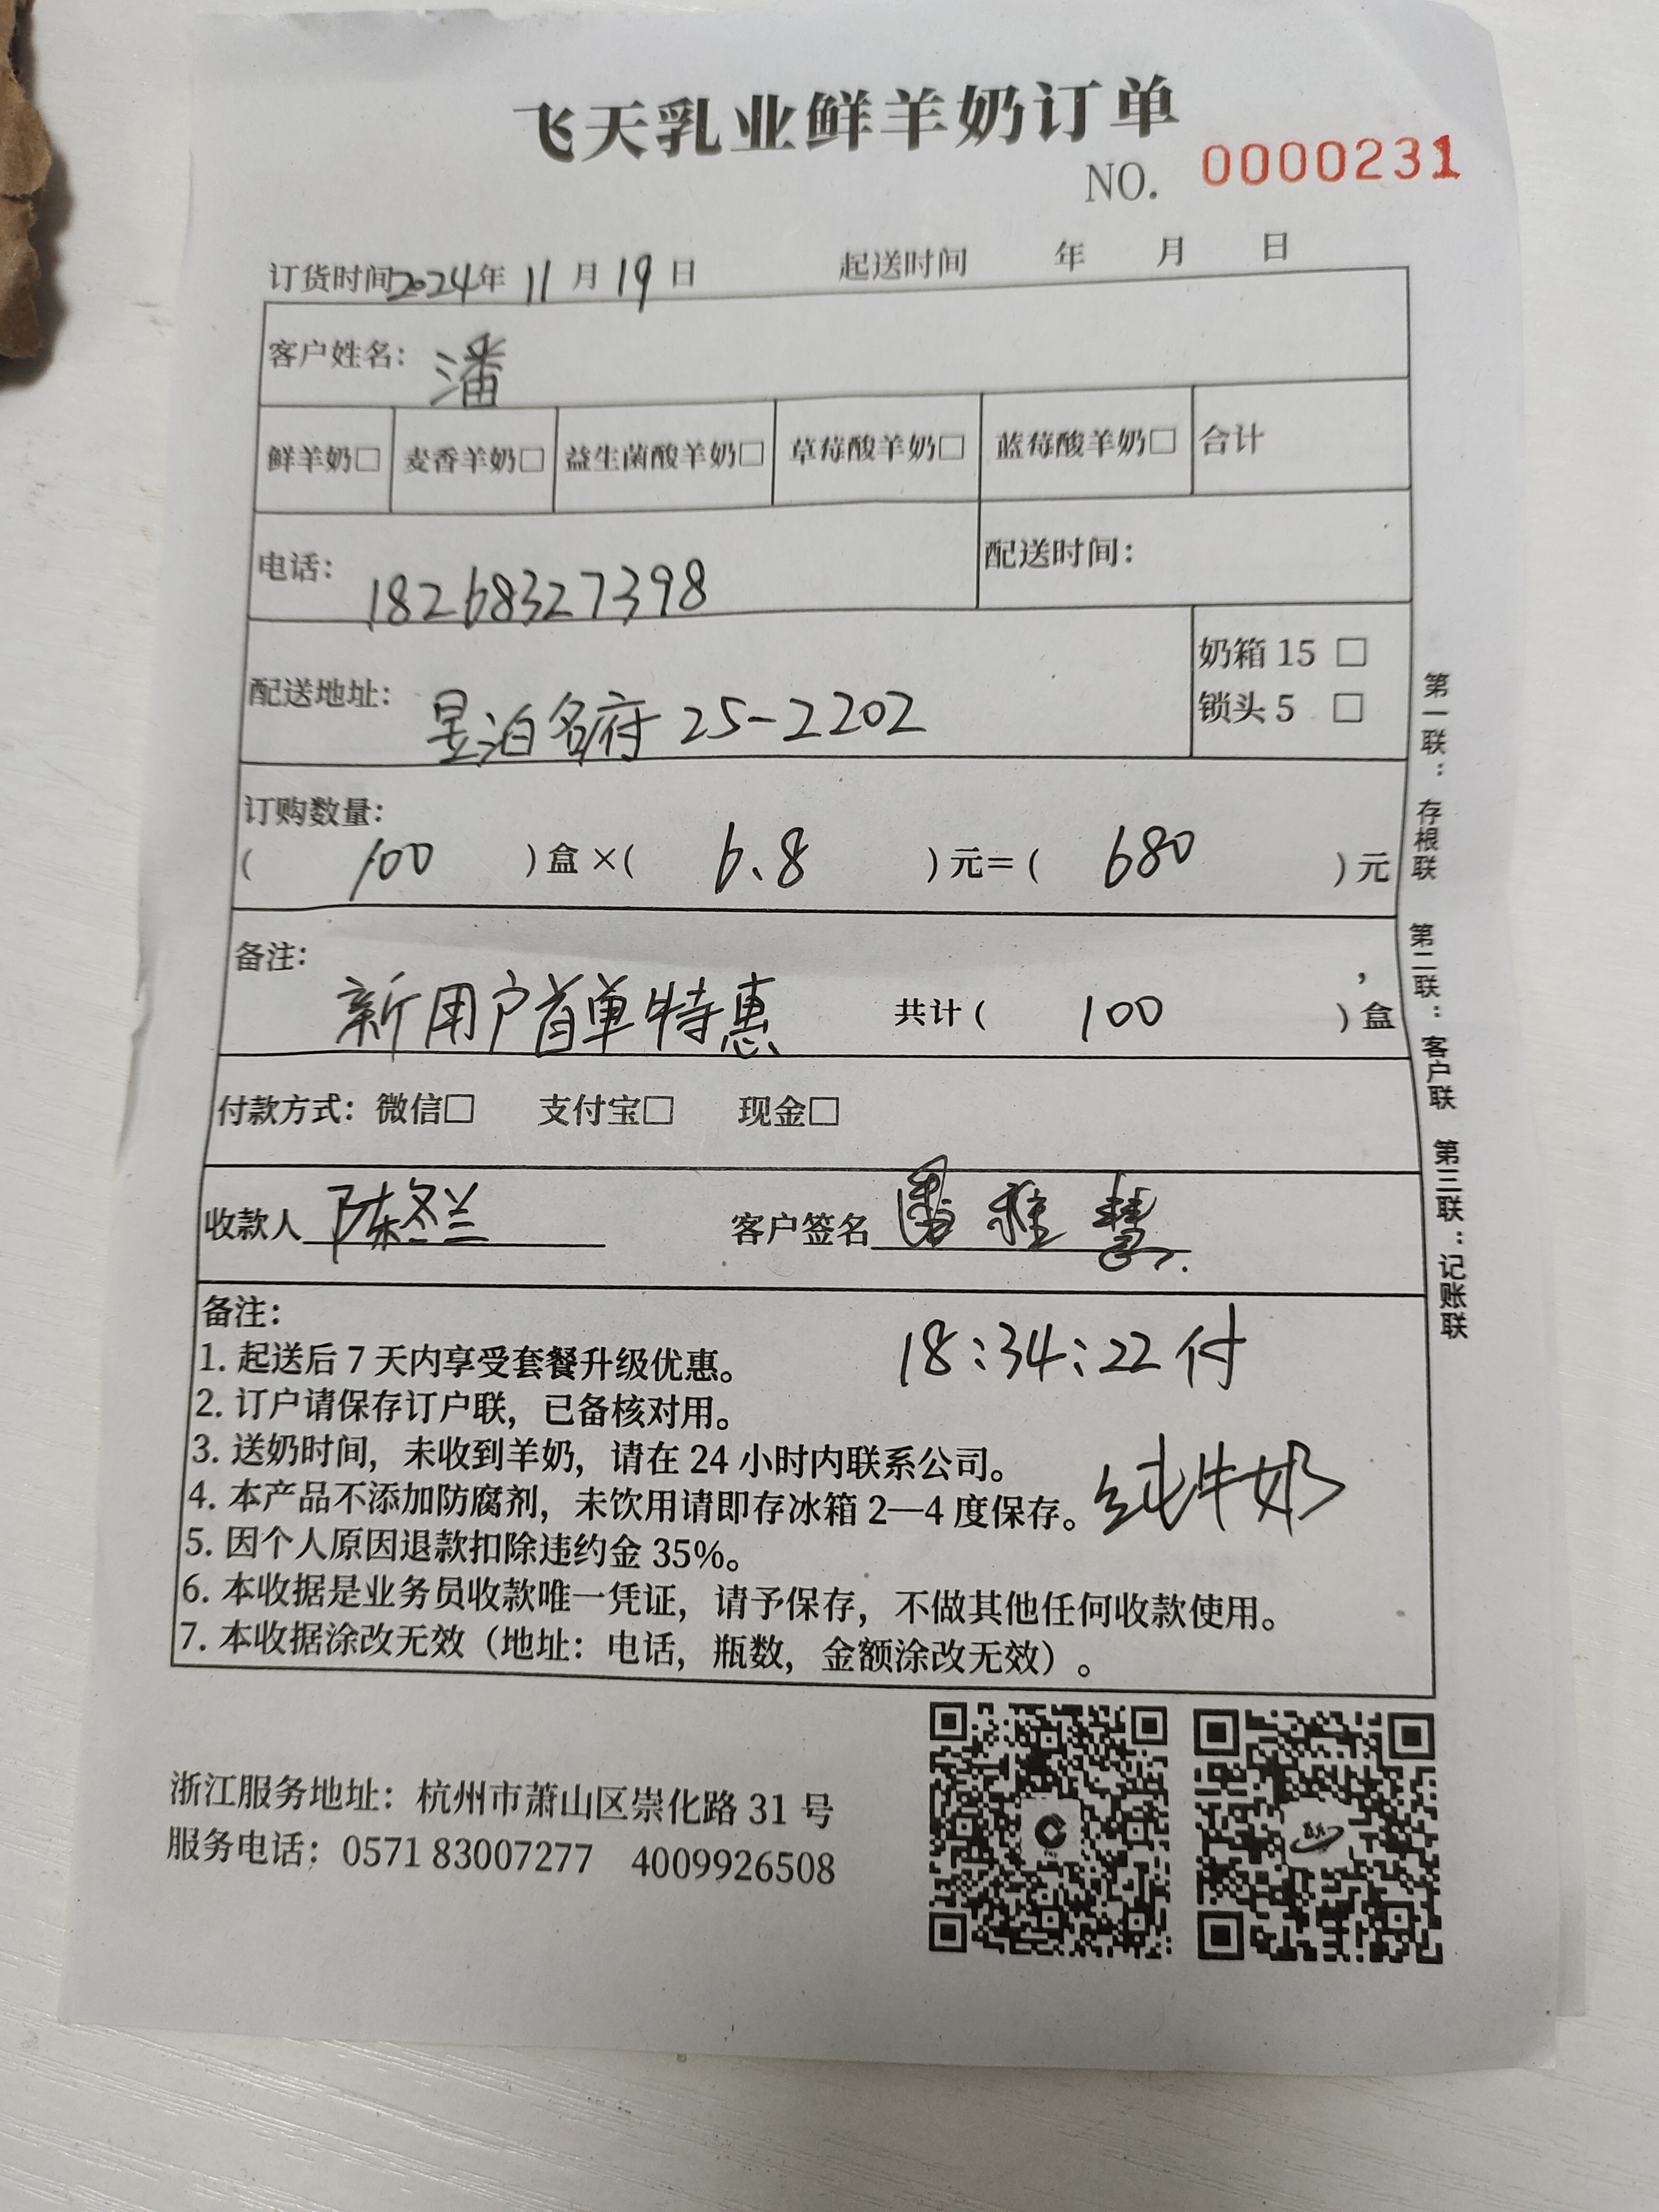 飞天乳业鲜羊奶订单
NO. 0000231
订货时间2024年 11月 19日 起送时间 年 月 日
客户姓名：潘
鲜羊奶□ 麦香羊奶□ 益生菌酸羊奶□ 草莓酸羊奶□ 蓝莓酸羊奶□ 合计
电话：18268327398 配送时间：
配送地址：昱泊名府 25-2202
奶箱 15 □
锁头 5 □
订购数量：
( 100 )盒×( 6.8 )元=( 680 )元
备注：新用户首单特惠 共计( 100 )盒
付款方式：微信□ 支付宝□ 现金□
收款人 陈冬兰 客户签名 潘雅慧
备注：
18:34:22付
1. 起送后 7 天内享受套餐升级优惠。
2. 订户请保存订户联，已备核对用。
3. 送奶时间，未收到羊奶，请在 24 小时内联系公司。
4. 本产品不添加防腐剂，未饮用请即存冰箱 2—4 度保存。
纯牛奶
5. 因个人原因退款扣除违约金 35%。
6. 本收据是业务员收款唯一凭证，请予保存，不做其他任何收款使用。
7. 本收据涂改无效（地址：电话，瓶数，金额涂改无效）。
第一联：存根联 第二联：客户联 第三联：记账联
浙江服务地址：杭州市萧山区崇化路 31 号
服务电话：0571 83007277 4009926508